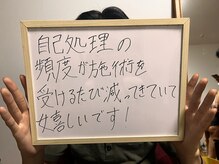 自己処理の
頻度が施術を
受けるたび減ってきていて
嬉しいです!